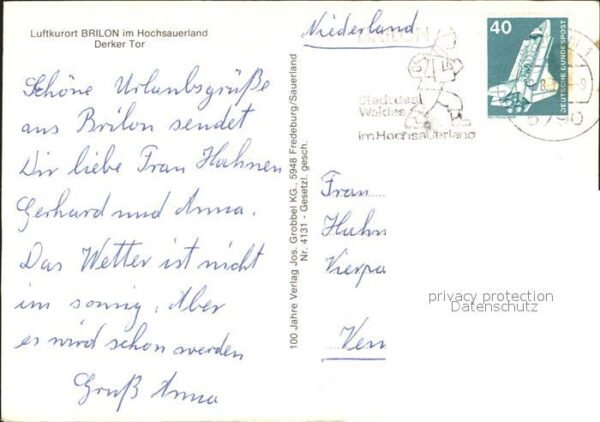 Luftkurort BRILON im Hochsauerland
Derker Tor
Schöne Urlaubsgrüße
aus Brilon sendet
Dir liebe Frau Hahnen
Gerhard und Anna.
Das Wetter ist nicht
im sonnig. Aber
es wird schon werden
Gruß Anna
100 Jahre Verlag Jos. Grobbel KG., 5948 Fredeburg/Sauerland
Nr. 4131 - Gesetzl. gesch.
Niederland
Stadt des
Waldes
im Hochsauerland
40
DEUTSCHE BUNDESPOST
Frau
Hahn
Vierpa
Ven
privacy protection
Datenschutz